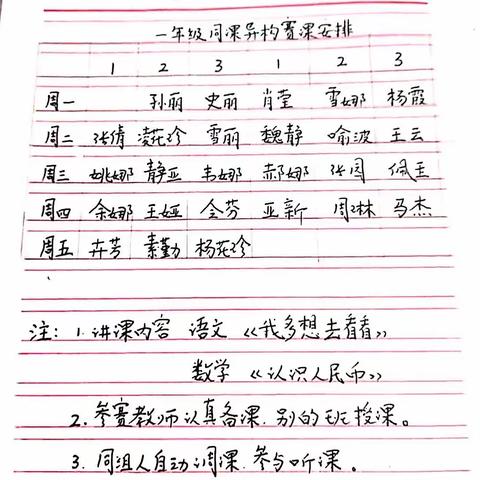 一年级同课异构赛课安排
1 2 3 1 2 3
周一 孙丽 史丽 肖莹 雪娜 杨霞
周二 张倩 凌花珍 雪丽 魏静 喻波 王云
周三 姚娜 静亚 韦娜 郝娜 张园 佩玉
周四 余娜 王娅 全芬 亚新 周琳 马杰
周五 卉芳 素勤 杨花珍
注：1.讲课内容 语文《我多想去看看》
数学《认识人民币》
2.参赛教师认真备课，别的班授课。
3.同组人自动调课，参与听课。